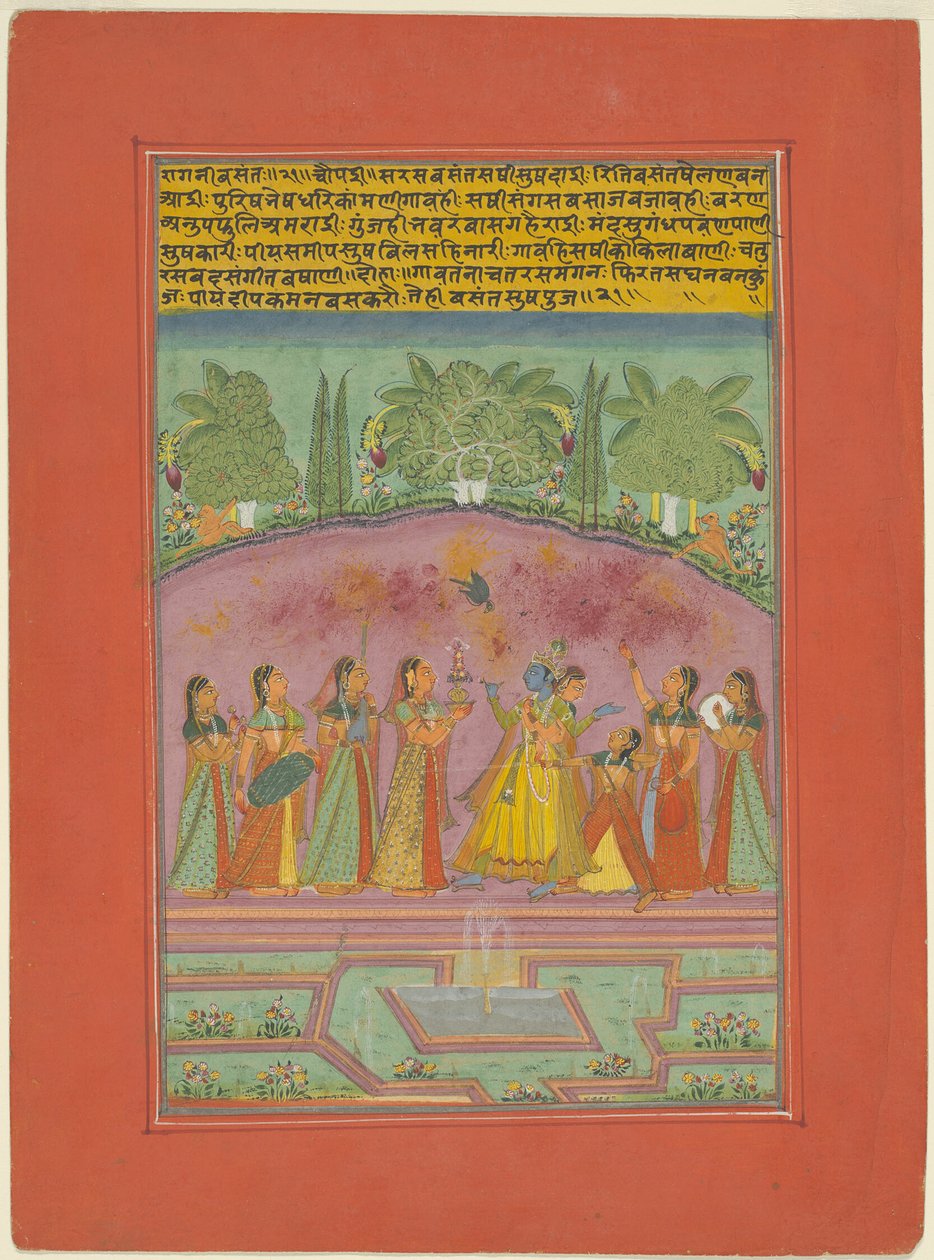 रागनी बसंतः॥२१॥ चौपइी॥ सरस बसंत सषी सुषदाइीः रिति बसंत षेलण बन
आइीः पुरिष नेष धरि कांमणी गावंहीः सषी संग सब साज बजावहीः बरण
अनुप फुलि अमराइीः गुंजही नवर बास गहैराइीः मंद सुगंध पवंण पाणी
सुषकारीः पीय समीप सुष बिलसहि नारीः गावहि सषी कोकिला बाणीः चतु
र सबद संगीत बषाणी॥ दोहाः॥ गावत नाचत रस मगनः फिरत सघन बन कुं
जः पीय दीपक मन बस करौः तेही बसंत सुष पुज॥२१॥